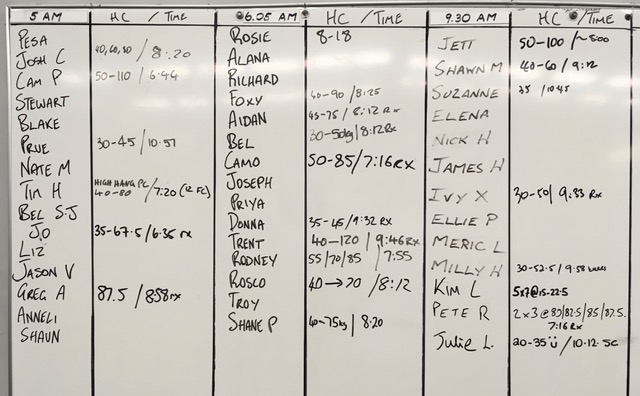 5 AM HC / TIME 6.05 AM HC / TIME 9.30 AM HC / TIME
PESA
JOSH C 40,60,80 / 8:20
CAM P 50-110 / 6:44
STEWART
BLAKE
PRUE 30-45 / 10:57
NATE M
TIM H HIGH HANG PC/ 40-80 / 7:20 (12 PC)
BEL S.J
JO 35-67.5/6:35 rx
LIZ
JASON V
GREG A 87.5 / 858 rx
ANNELI
SHAUN
ROSIE 8-18
ALANA
RICHARD
FOXY 40-90 / 8:25
AIDAN 45-75 / 8:12 Rx
BEL 30-50kg / 8:12 Rx
CAMO 50-85 / 7:16 RX
JOSEPH
PRIYA
DONNA 35-45/9:32 RX
TRENT 40-120 / 9:46 RX
RODNEY 55/70/85 / 7:55
ROSCO 40→70 / 8:12
TROY
SHANE P 40-75kg / 8:20
JETT 50-100 /
SHAWN M 40-60 / 9:12
SUZANNE 35 / 10:45
ELENA
NICK H
JAMES H
IVY X 30-50/ 9:33 Rx
ELLIE P
MERIC L
MILLY H 30-52.5 / 9:58
KIM L 5x7@15-22.5
PETE R 2x3@80/82.5/85/87.5.
7:16 Rx
Julie L. 20-35 ü / 10:12 SC